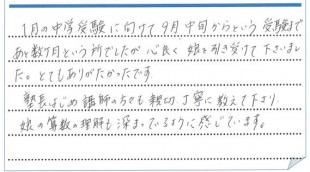 1月の中学受験に向けて9月中旬からという受験まで
あと数ヶ月という所でしたが心良く娘を引き受けて下さいまし
た。とてもありがたかったです。
塾長はじめ講師の方々も親切丁寧に教えて下さり、
娘の算数の理解も深まっているように感じています。